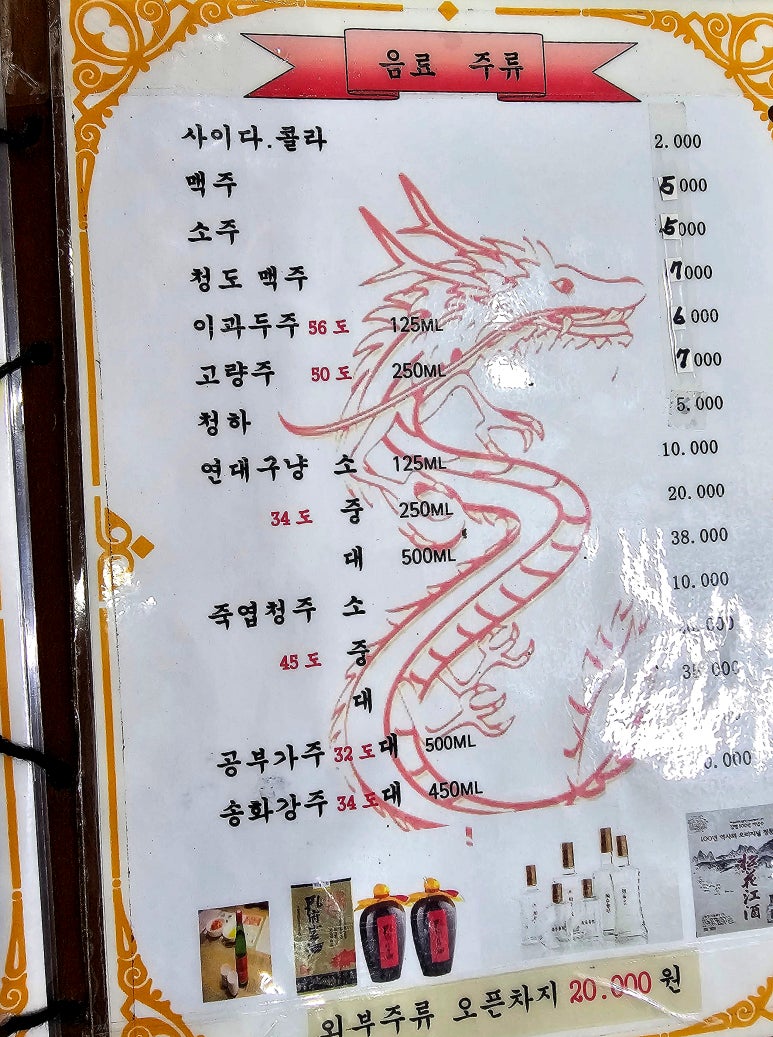 음료 주류
사이다.콜라 2.000
맥주 5000
소주 5000
청도 맥주 7000
이과두주 56 도 125ML 6000
고량주 50 도 250ML 7000
청하 5.000
연대구냥 소 125ML 10.000
34 도 중 250ML 20.000
대 500ML 38.000
죽엽청주 소 10.000
45 도 중
대
공부가주 32 도 대 500ML
송화강주 34 도 대 450ML
松花江酒
외부주류 오픈차지 20.000 원